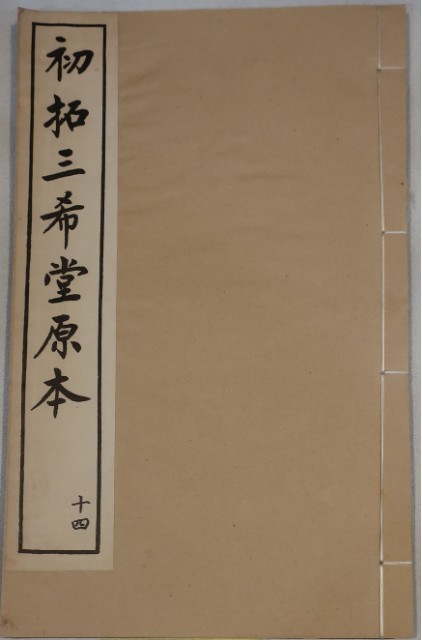 初拓三希堂原本
十四